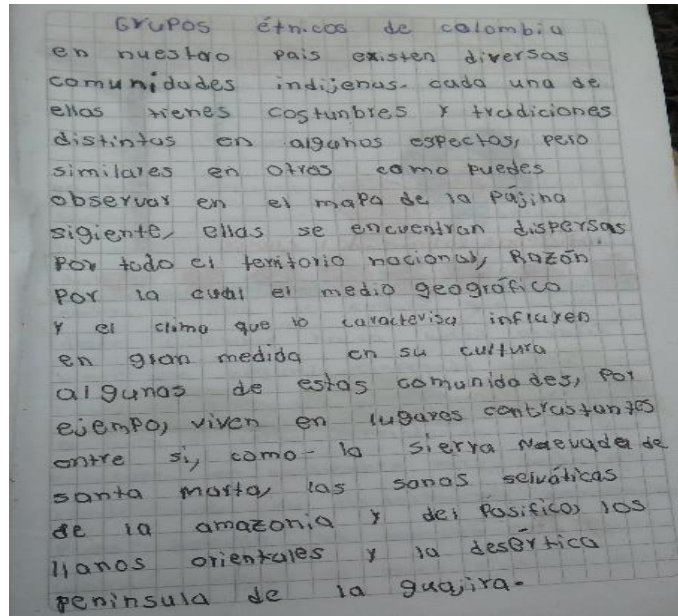 Grupos étnicos de colombia
en nuestaro pais existen diversas
comunidades indijenas. cada una de
ellas tienes costunbres y tradiciones
distintas en algunos espectos, pero
similares en otros como puedes
observar en el mapa de la pájina
sigiente, ellas se encuentran dispersas
por todo el territorio nacional, Razón
por la cual el medio geográfico
y el clima que lo caracterisa influyen
en gran medida en su cultura
algunas de estas comunidades, por
ejempo, viven en lugares contrastantes
entre si, como- la sierra Naevada de
santa marta, las sonas selváticas
de la amazonia y del Posifico, los
llanos orientales y la desértica
peninsula de la guajira.